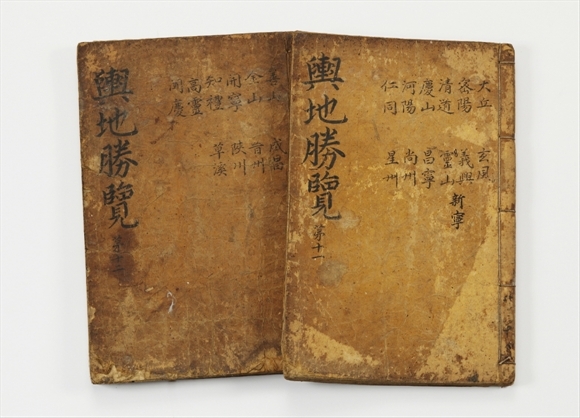 大丘 玄風
密陽 義興
新寧
清道 靈山
慶山 昌寧
河陽 尚州
仁同 星州
輿地勝覽 第十一
善山 咸昌
金山 晋州
開寧 陜川
知禮 草溪
高靈
聞慶
輿地勝覽 第十二